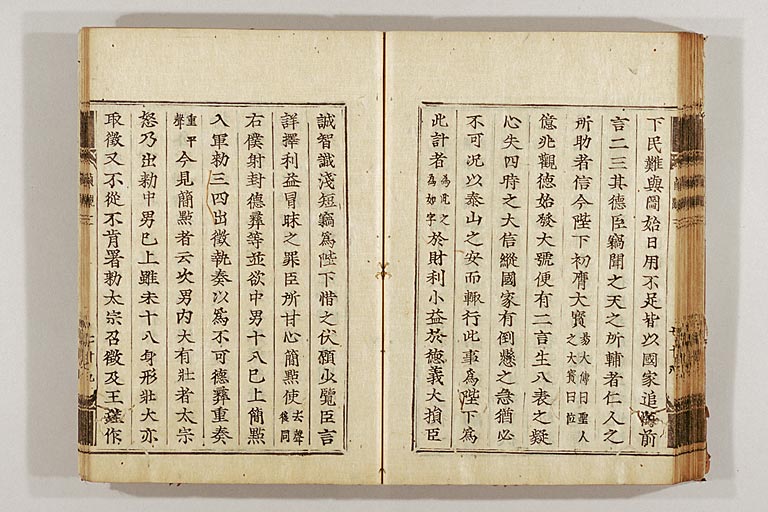 下民難與圖始日用不足皆以國家追悔前
言二三其德臣竊聞之天之所輔者仁人之
所助者信今陛下初膺大寶易大傳曰聖人之大寶曰位
億兆觀德始發大號便有二言生八表之疑
心失四時之大信縱國家有倒懸之急猶必
不可況以泰山之安而輒行此事爲陛下爲
此計者爲此之爲如字於財利小益於德義大損臣
誠智識淺短竊爲陛下惜之伏願少覽臣言
詳擇利益冒昧之罪臣所甘心簡點使去聲後同
右僕射封德彛等並欲中男十八已上簡點
入軍勅三四出徵執奏以爲不可德彛重奏
重平聲今見簡點者云次男內大有壯者太宗
怒乃出勅中男已上雖未十八身形壯大亦
取徵又不從不肯署勅太宗召徵及王珪作